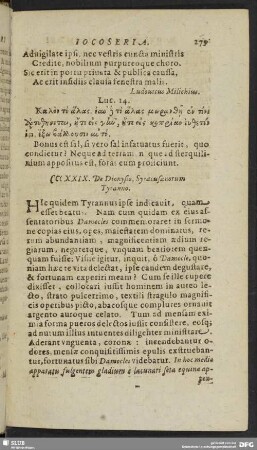 IOCOSERIA. 279
Advigilate ipsi, nec vestris cuncta ministris
Credite, nobilium purpureoque choro.
Sic erit in portu privata & publica causa,
Ac erit insidiis clausa fenestra malis.
Ludovicus Milichius.
Luc. 14.
Bonus est sal, si vero sal infatuatus fuerit, quo
condietur? Neque ad terram neque ad sterquili-
nium appositus est, foras eum proiiciunt.
CCCXXIX. De Dionysio, Syracusanorum
Tyranno.
HIc quidem Tyrannus ipse indicavit, quam
esset beatus. Nam cum quidam ex eius as-
sentatoribus Damocles commemoraret in sermo-
ne copias eius, opes, maiestatem dominatus, re-
rum abundantiam, magnificentiam ædium re-
giarum, negaretque, unquam beatiorem quen-
quam fuisse. Visne igitur, inquit, ô Damocle, quo-
niam hæc te vita delectat, ipse eandem degustare,
& fortunam experiri meam? Cum se ille cupere
dixisset, collocari iussit hominem in aureo le-
cto, strato pulcerrimo, textili stragulo magnifi-
cis operibus picto, abacosque complures ornavit
argento auroque celato. Tum ad mensam exi-
mia forma pueros delectos iussit consistere, eosq;
ad nutum illius intuentes diligenter ministrare.
Aderant unguenta, coronæ: incendebantur o-
dores, mensæ conquisitissimis epulis exstrueban-
tur, fortunatus sibi Damocles videbatur. In hoc medio
apparatu fulgentem gladium è lacunari seta equina ap-
pen-
SLUB